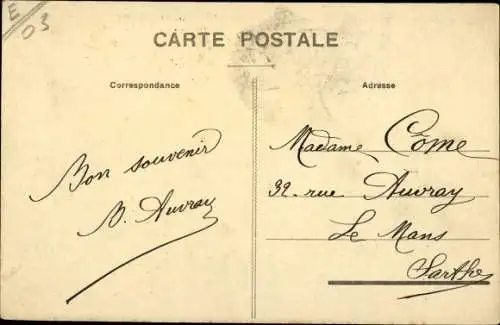 E
03
CARTE POSTALE
Correspondance
Adresse
Bon souvenir
Madame Côme
32 rue Auvray
Le Mans
Sarthe